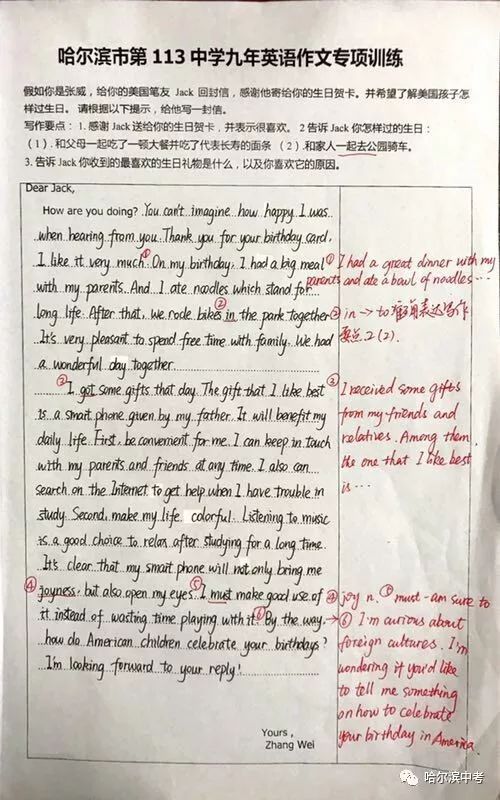 哈尔滨市第 113 中学九年英语作文专项训练
假如你是张威，给你的美国笔友 Jack 回封信，感谢他寄给你的生日贺卡。并希望了解美国孩子怎
样过生日。 请根据以下提示，给他写一封信。
写作要点： 1. 感谢 Jack 送给你的生日贺卡，并表示很喜欢。 2 告诉 Jack 你怎样过的生日：
（1）. 和父母一起吃了一顿大餐并吃了代表长寿的面条 （2）. 和家人一起去公园骑车。
3. 告诉 Jack 你收到的最喜欢的生日礼物是什么，以及你喜欢它的原因。
Dear Jack,
How are you doing? You can't imagine how happy I was
when hearing from you. Thank you for your birthday card.
I like it very much. ① On my birthday, I had a big meal
with my parents. And I ate noodles which stand for
long life. After that, we rode bikes ② in the park together
It's very pleasant to spend free time with family. We had
a wonderful day together.
② I got some gifts that day. The gift that I like best
is a smart phone given by my father. It will benefit my
daily life. First, be convenient for me. I can keep in touch
with my parents and friends at any time. I also can
search on the Internet to get help when I have trouble in
study. Second, make my life colorful. Listening to music
is a good choice to relax after studying for a long time.
It's clear that my smart phone will not only bring me
④ joyness, but also open my eyes. ⑤ I must make good use of
it instead of wasting time playing with it. ⑥ By the way,
how do American children celebrate your birthdays?
I'm looking forward to your reply!
Yours ,
Zhang Wei
① I had a great dinner with my
parents and ate a bowl of noodles...
② in → to 准确表达写作
要点 2 (2).
③ I received some gifts
from my friends and
relatives. Among them
the one that I like best
is ...
④ joy n. ⑤ must - am sure to
⑥ I'm curious about
foreign cultures. I'm
wondering if you'd like
to tell me something
on how to celebrate
your birthday in America.
哈尔滨中考